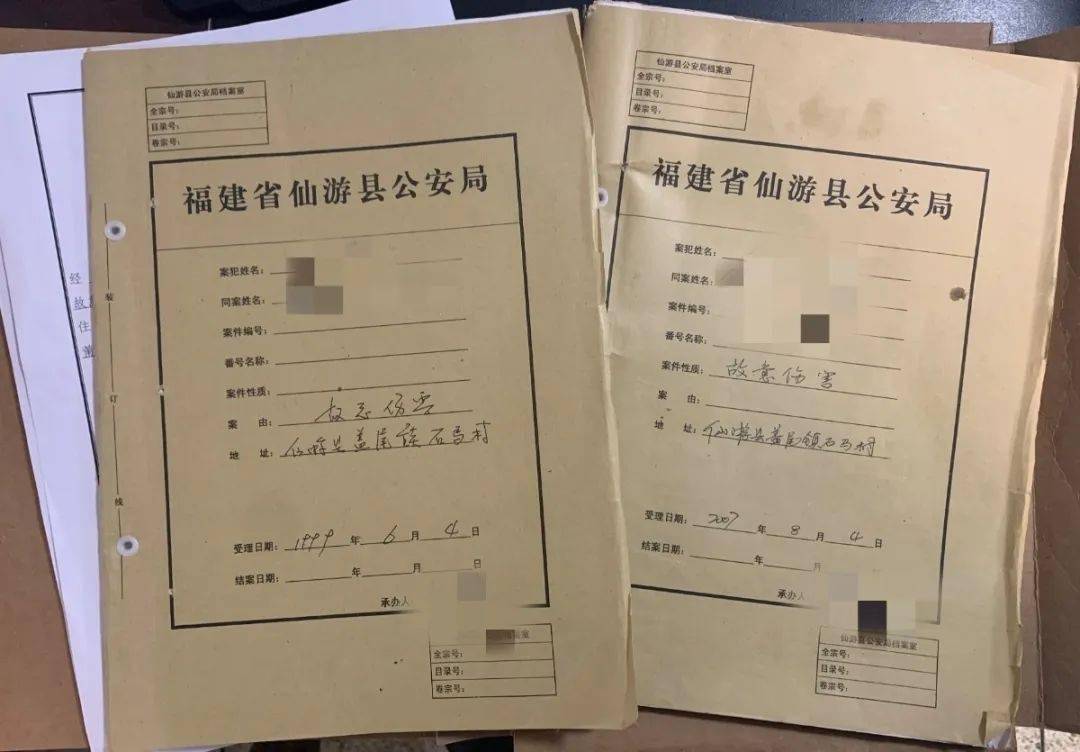 仙游县公安局档案室
全宗号:
目录号:
卷宗号:
福建省仙游县公安局
案犯姓名:
同案姓名:
案件编号:
番号名称:
案件性质:
案 由: 故意伤害
地 址: 仙游县盖尾镇石马村
受理日期: 1999 年 6 月 4 日
结案日期: 年 月 日
承办人
案室
全宗号:
目录号:
卷宗号:
装
订
线
仙游县公安局档案室
全宗号:
目录号:
卷宗号:
福建省仙游县公安局
案犯姓名:
同案姓名:
案件编号:
番号名称:
案件性质: 故意伤害
案 由:
地 址: 仙游县盖尾镇石马村
受理日期: 2007 年 8 月 4 日
结案日期: 年 月
承办人
仙游县公安局档案室
全宗号:
目录号:
卷宗号:
经
故
住